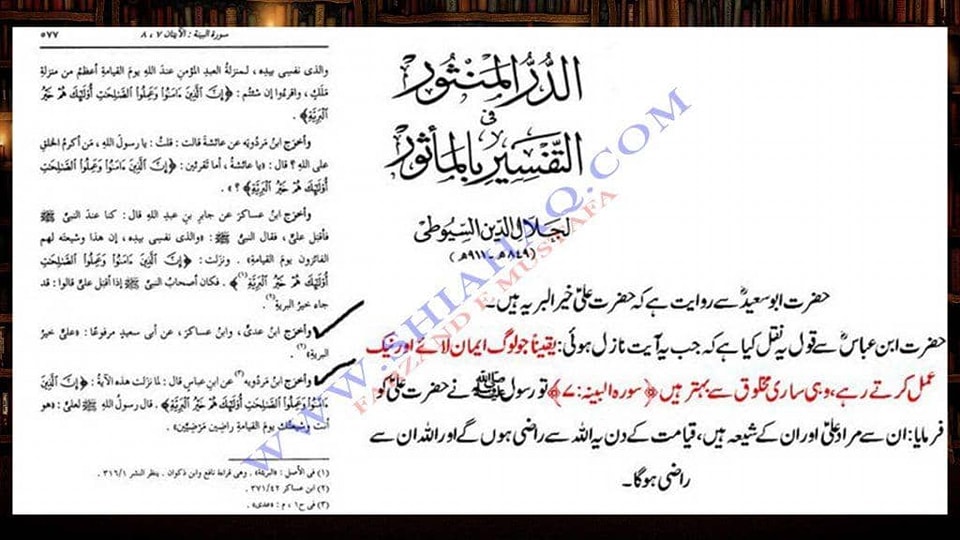 سورة البينة : الآيتان ٧ ، ٨
٥٧٧
والذى نفسى بيده ، لمنزلةُ العبدِ المؤمنِ عندَ اللهِ يومَ القيامةِ أعظمُ من منزلةِ
مَلَكٍ ، واقرءُوا إن شئتُم : ﴿إِنَّ الَّذِينَ ءَامَنُوا وَعَمِلُوا الصَّالِحَاتِ أُوْلَئِكَ هُمْ خَيْرُ
الْبَرِيَّةِ﴾ .
وأخرَج ابنُ مَرْدُويَه عن عائشةَ قالت : قلتُ : يا رسولَ اللهِ ، مَن أكرمُ الخلقِ
على اللهِ ؟ قال : «يا عائشةُ ، أما تقرئين : ﴿إِنَّ الَّذِينَ ءَامَنُوا وَعَمِلُوا الصَّالِحَاتِ
أُوْلَئِكَ هُمْ خَيْرُ الْبَرِيَّةِ﴾ ؟» .
وأخرَج ابنُ عساكرَ عن جابرِ بنِ عبدِ اللهِ قال : كنا عندَ النبىِّ ﷺ
فأقبَل علىٌّ ، فقال النبىُّ ﷺ : «والذى نفسى بيدِه ، إن هذا وشيعتَه لهم
الفائزون يومَ القيامةِ» . ونزَلت : ﴿إِنَّ الَّذِينَ ءَامَنُوا وَعَمِلُوا الصَّالِحَاتِ
أُوْلَئِكَ هُمْ خَيْرُ الْبَرِيَّةِ﴾ (١) . فكان أصحابُ النبىِّ ﷺ إذا أقبَل علىٌّ قالوا : قد
جاء خيرُ البريةِ (٢) .
وأخرَج ابنُ عدىٍّ ، وابنُ عساكرَ ، عن أبى سعيدٍ مرفوعًا : «علىٌّ خيرُ
البريةِ» (٢) .
وأخرَج ابنُ مردويه (٣) عن ابنِ عباسٍ قال : لما نزَلت هذه الآيةُ : ﴿إِنَّ الَّذِينَ
ءَامَنُوا وَعَمِلُوا الصَّالِحَاتِ أُوْلَئِكَ هُمْ خَيْرُ الْبَرِيَّةِ﴾ . قال رسولُ اللهِ ﷺ لعلىٍّ : «هو
أنت وشيعتُك يومَ القيامةِ راضين مَرْضِيِّين» .
(١) فى الأصل : «البريئة» . وهى قراءة نافع وابن ذكوان . ينظر النشر ٣١٦/١ .
(٢) ابن عساكر ٣٧١/٤٢ .
(٣) فى ح١ ، م : «عدى» .
الدُّرُّ الْمَنْثُورُ
فى
التَّفْسِيرِ بِالْمَأْثُورِ
لجلال الدين السيوطى
(٨٤٩هـ - ٩١١هـ)
حضرت ابو سعیدؓ سے روایت ہے کہ حضرت علیؑ خیر البریہ ہیں۔
حضرت ابن عباسؓ سے قول یہ نقل کیا ہے کہ جب یہ آیت نازل ہوئی: یقیناً جو لوگ ایمان لائے اور نیک
عمل کرتے رہے، وہی ساری مخلوق سے بہتر ہیں ﴿سورہ البینہ: ۷﴾ تو رسول ﷺ نے حضرت علیؑ کو
فرمایا: ان سے مراد علیؑ اور ان کے شیعہ ہیں، قیامت کے دن یہ اللہ سے راضی ہوں گے اور اللہ ان سے
راضی ہوگا۔
WWW.SHIAHAQ.COM
FAIZAND E MUSTAFA